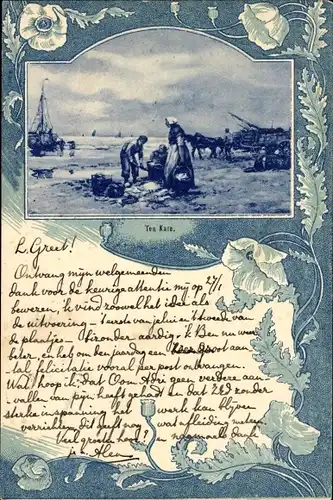 Ten Kate.
L. Greet!
Ontvang mijn welgemeenden
dank voor de keurige attentie mij op 27/1
bewezen, ik vind zoowel het idee als
de uitvoering — 't eerste van jelui en 't tweede van
de plaatjes — bizonder aardig. ik Ben nu weer
beter, en heb om den jaardag een groot aan
tal felicitatie vooral per post ontvangen.
Wel hoop ik, dat Oom Adri geen verdere aan
vallen van pijn heeft gehad en dat ZEd zonder
sterke inspanning het werk kan blijven
verrichten, dit heeft nog wat afleiding
Veel groeten hoor! en nogmaals dank
je